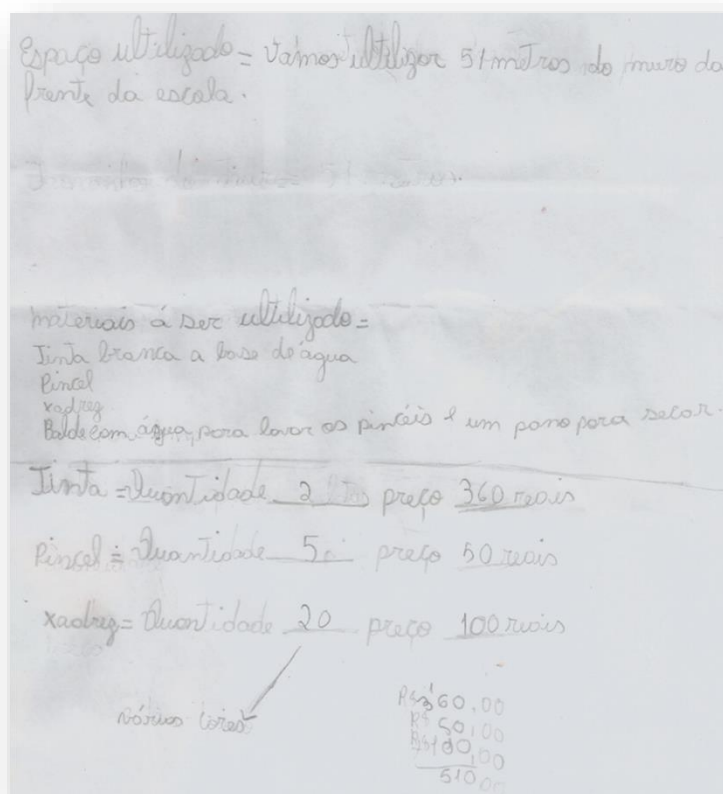 Espaço ultilizado = Vamos ultilizar 51 metros do muro da
frente da escola.
materiais á ser ultilizado =
Tinta branca a base de água
Pincel
xadrez
Balde com água para lavar os pincéis e um pano para secar.
Tinta = Quantidade 2 preço 360 reais
Pincel = Quantidade 5 preço 50 reais
xadrez = Quantidade 20 preço 100 reais
várias cores
R$360,00
R$ 50,00
R$100,00
510,00